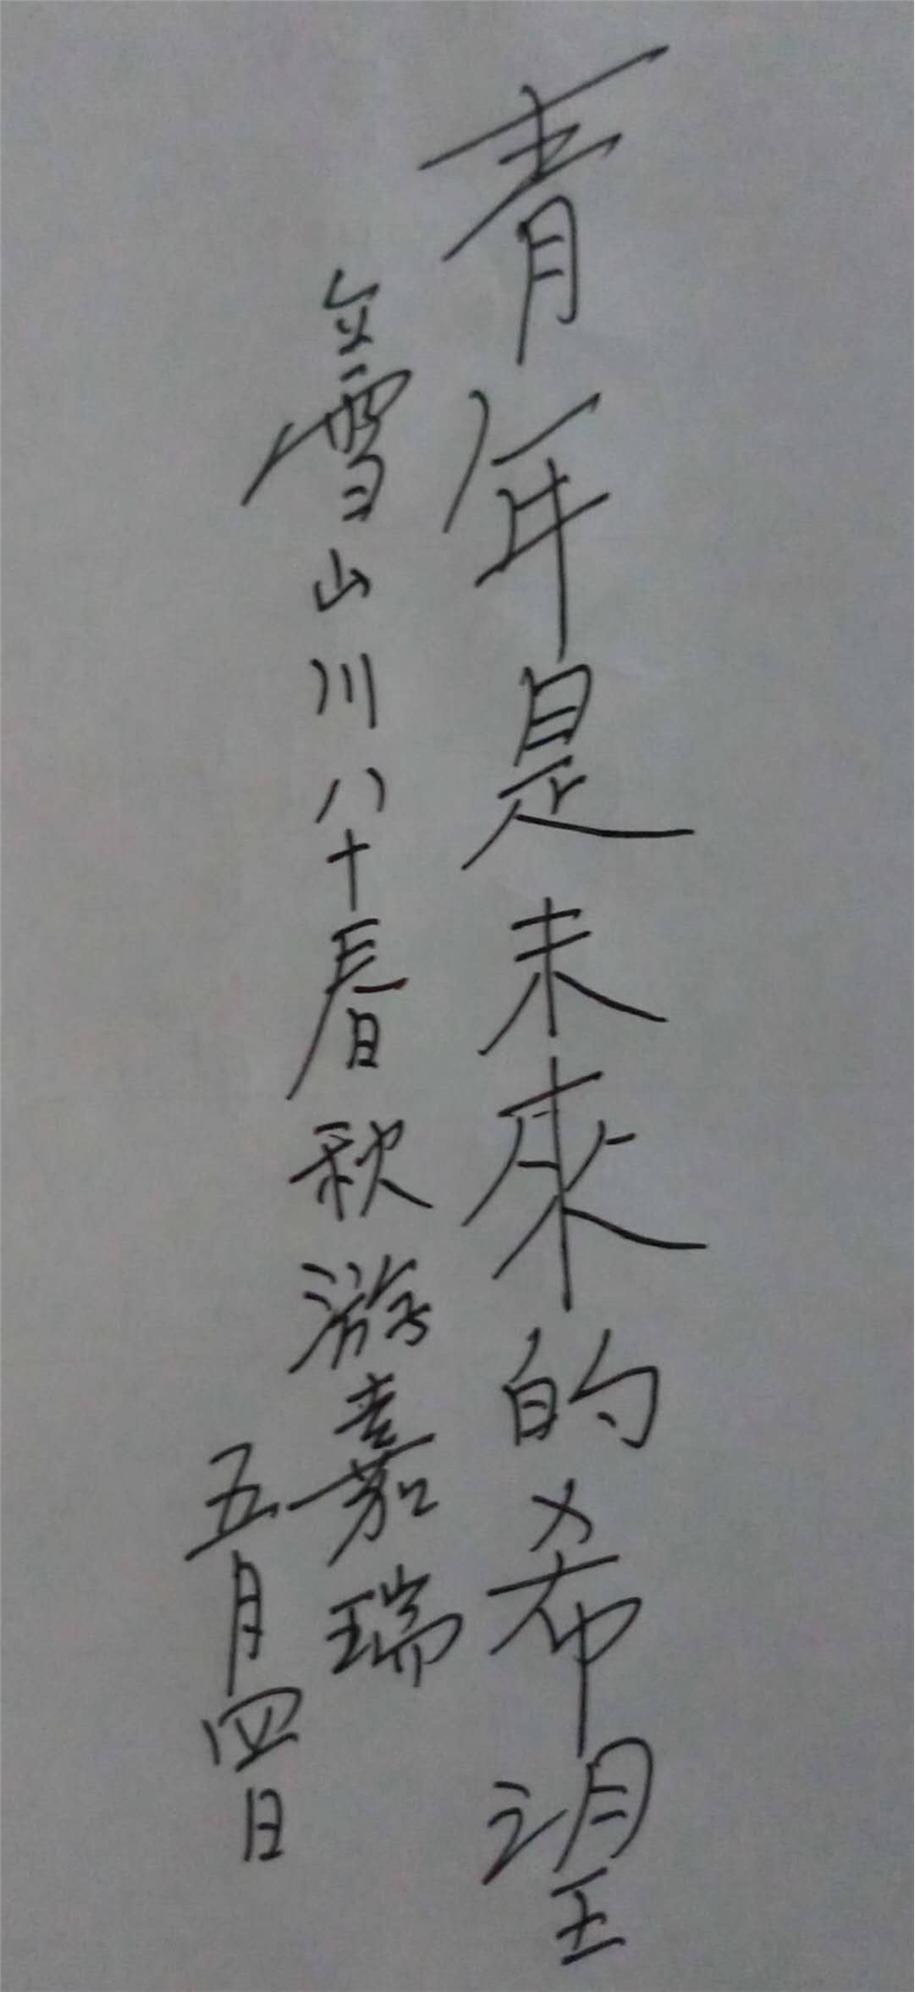 青年是未來的希望
雪山川八十春秋游嘉瑞
五月四日